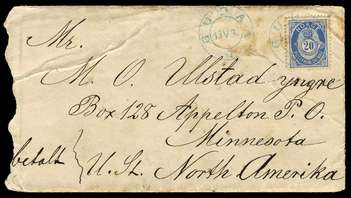 20
Mr.
M. O. Ulstad yngre
Box 128 Appelton P. O.
Minnesota
betalt
U. St. North Amerika